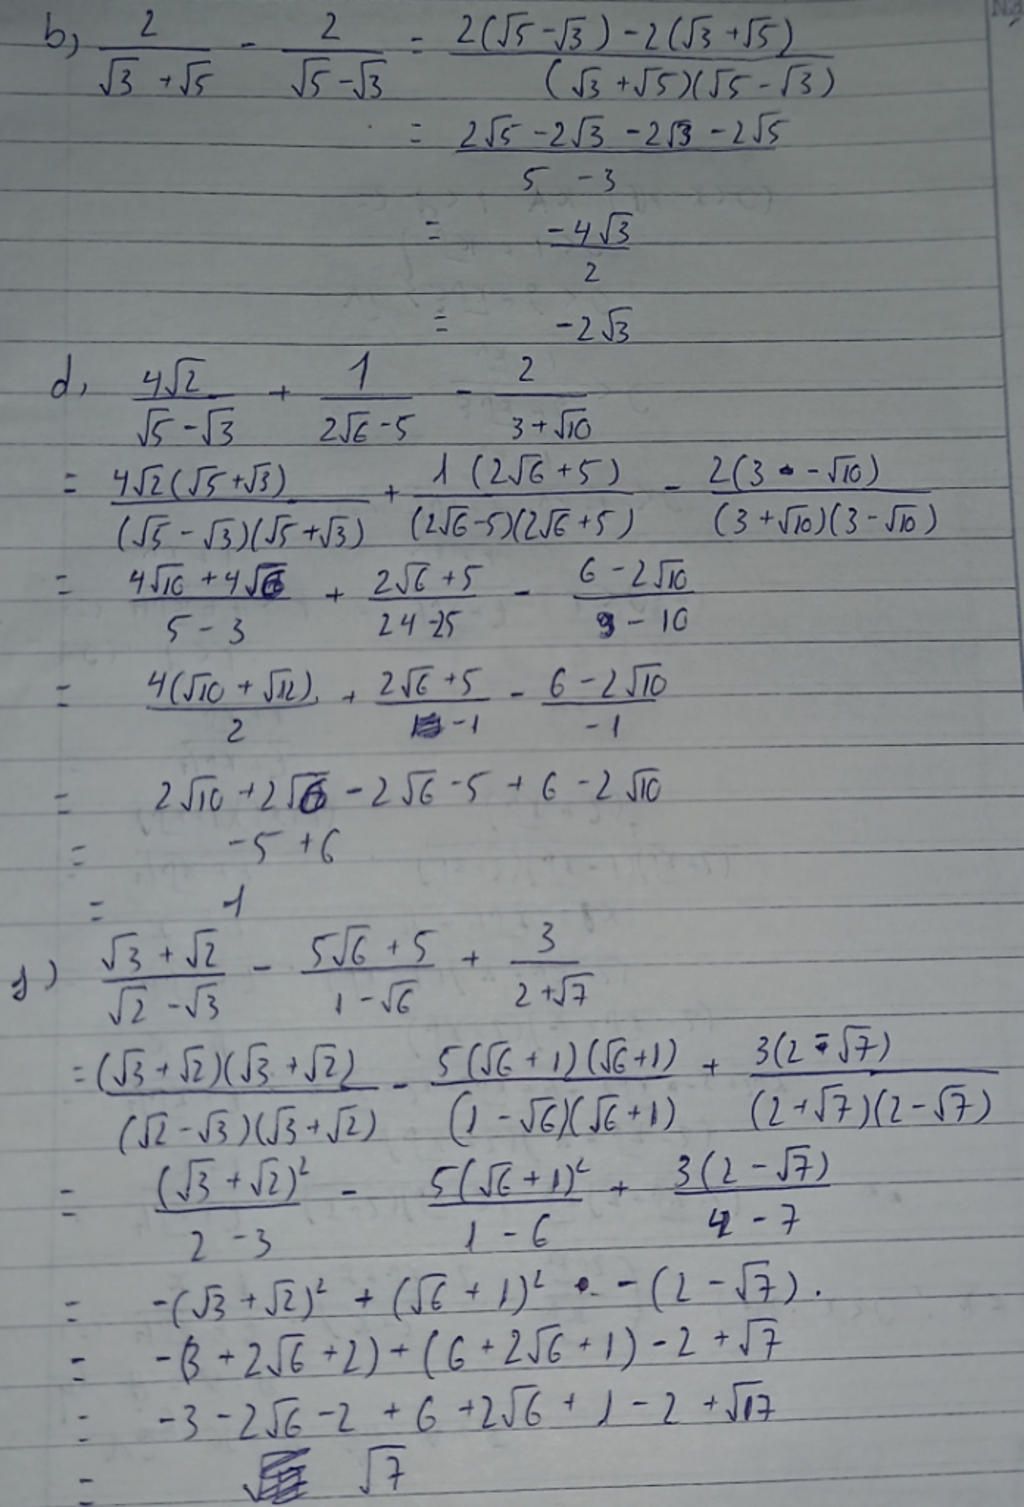 b, 2/(√3 + √5) - 2/(√5 - √3) = (2(√5 - √3) - 2(√3 + √5))/((√3 + √5)(√5 - √3))
= (2√5 - 2√3 - 2√3 - 2√5)/(5 - 3)
= (-4√3)/2
= -2√3
d, 4√2/(√5 - √3) + 1/(2√6 - 5) - 2/(3 + √10)
= 4√2(√5 + √3)/((√5 - √3)(√5 + √3)) + 1(2√6 + 5)/((2√6 - 5)(2√6 + 5)) - 2(3 - √10)/((3 + √10)(3 - √10))
= (4√10 + 4√6)/(5 - 3) + (2√6 + 5)/(24 - 25) - (6 - 2√10)/(9 - 10)
= 4(√10 + √12)/2 + (2√6 + 5)/(-1) - (6 - 2√10)/(-1)
= 2√10 + 2√6 - 2√6 - 5 + 6 - 2√10
= -5 + 6
= 1
) (√3 + √2)/(√2 - √3) - (5√6 + 5)/(1 - √6) + 3/(2 + √7)
= (√3 + √2)(√3 + √2)/((√2 - √3)(√3 + √2)) - 5(√6 + 1)(√6 + 1)/((1 - √6)(√6 + 1)) + 3(2 - √7)/((2 + √7)(2 - √7))
= (√3 + √2)²/(2 - 3) - 5(√6 + 1)²/(1 - 6) + 3(2 - √7)/(4 - 7)
= -(√3 + √2)² + (√6 + 1)² - (2 - √7).
= -(3 + 2√6 + 2) + (6 + 2√6 + 1) - 2 + √7
= -3 - 2√6 - 2 + 6 + 2√6 + 1 - 2 + √17
= √7